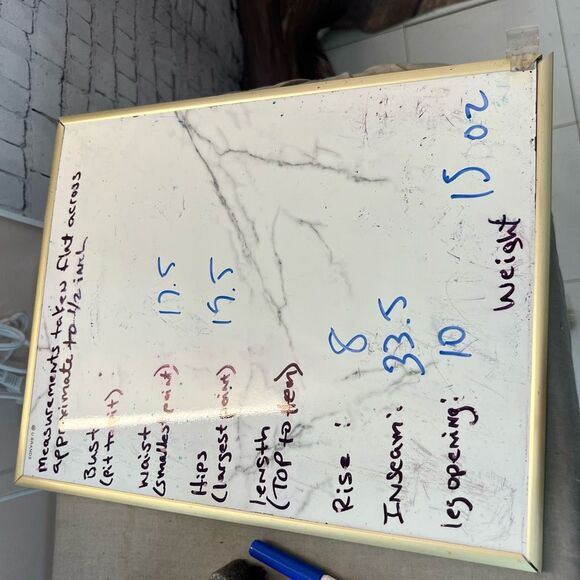 measurements taken flat across
approximate to 1/2 inch
Bust
(Pit to pit)
Waist 17.5
(smallest point)
Hips 19.5
(largest point)
Length
(Top to Hem)
Rise: 8
Inseam: 33.5
leg opening: 10
Weight 15 oz